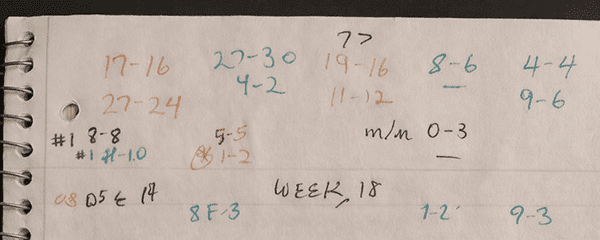 77
17-16 27-30 19-16 8-6 4-4
4-2
27-24 11-12 9-6
#1 8-8 5-5 m/m 0-3
#1 1-2
14 WEEK 18
8F-3 1-2 9-3